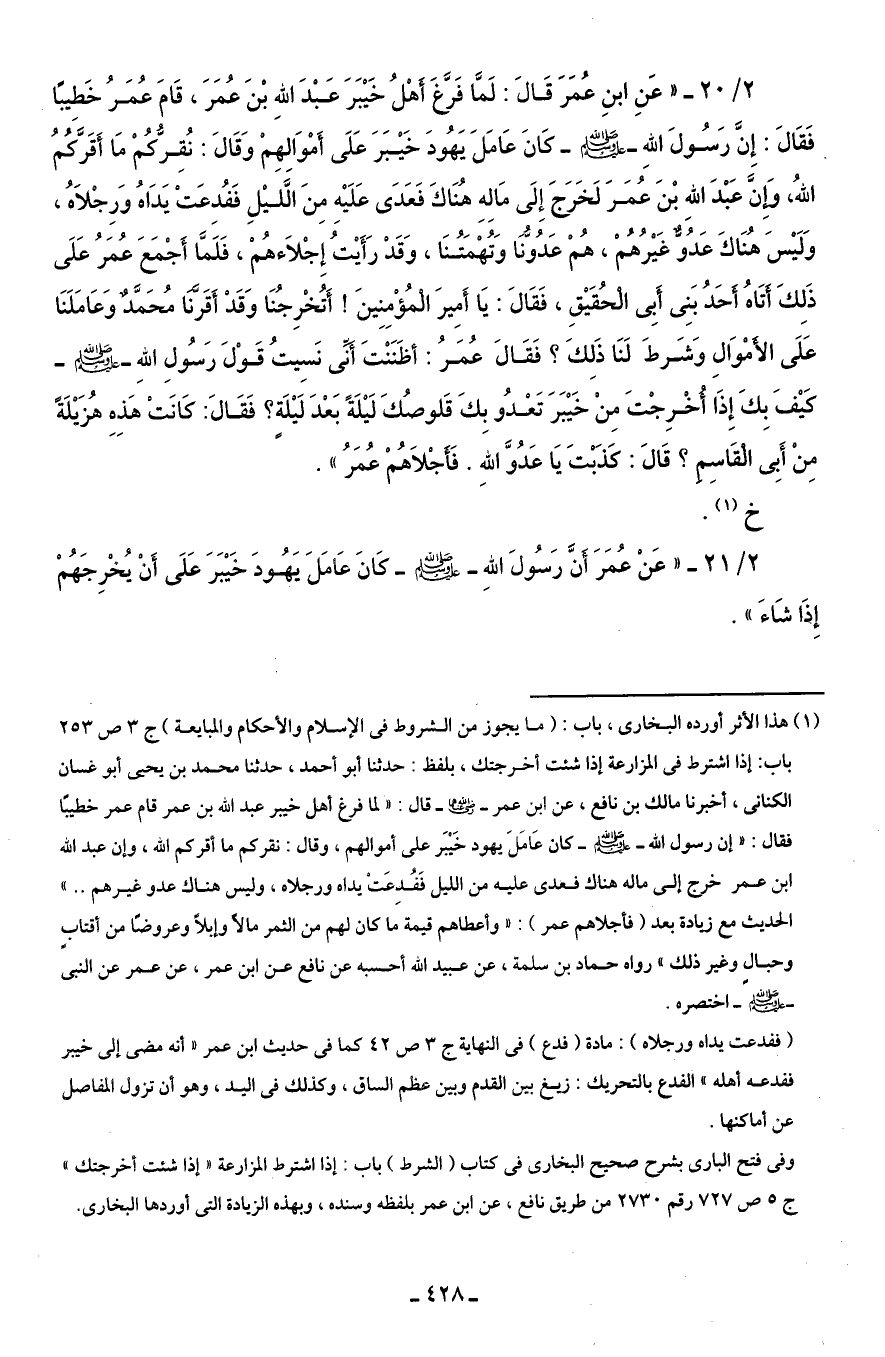 ٢/ ٢٠ ـ « عَنِ ابنِ عُمَرَ قَالَ : لَمَّا فَرَّغَ أَهْلُ خَيْبَرَ عَبْدَ اللهِ بْنَ عُمَرَ ، قَامَ عُمَرُ خَطِيبًا
فَقَالَ : إِنَّ رَسُولَ اللهِ ـ ﷺ ـ كَانَ عَامَلَ يَهُودَ خَيْبَرَ عَلَى أَمْوَالِهِمْ وَقَالَ : نُقِرُّكُمْ مَا أَقَرَّكُمُ
اللهُ، وَإِنَّ عَبْدَ اللهِ بْنَ عُمَرَ لَخَرَجَ إِلَى مَالِهِ هُنَاكَ فَعَدَى عَلَيْهِ مِنَ اللَّيْلِ فَفُدِعَتْ يَدَاهُ وَرِجْلاَهُ ،
وَلَيْسَ هُنَاكَ عَدُوٌّ غَيْرُهُمْ ، هُمْ عَدُوُّنَا وَتُهْمَتُنَا ، وَقَدْ رَأَيْتُ إِجْلاَءهُمْ ، فَلَمَّا أَجْمَعَ عُمَرُ عَلَى
ذَلِكَ أَتَاهُ أَحَدُ بَنِى أَبِى الْحُقَيْقِ ، فَقَالَ : يَا أَمِيرَ الْمُؤْمِنِينَ ! أَتُخْرِجُنَا وَقَدْ أَقَرَّنَا مُحَمَّدٌ وَعَامَلَنَا
عَلَى الأَمْوَالِ وَشَرطَ لَنَا ذَلِكَ ؟ فَقَالَ عُمَرُ : أظَنَنْتَ أَنِّى نَسِيتُ قَوْلَ رَسُولِ اللهِ ـ ﷺ ـ
كَيْفَ بِكَ إِذَا أُخْرِجْتَ مِنْ خَيْبَرَ تَعْدُو بِكَ قَلُوصُكَ لَيْلَةً بَعْدَ لَيْلَةٍ؟ فَقَالَ: كَانَتْ هَذِهِ هُزَيْلَةً
مِنْ أَبِى الْقَاسِمِ ؟ قَالَ : كَذَبْتَ يَا عَدُوَّ اللهِ . فَأَجْلاَهُمْ عُمَرُ » .
خ (١) .
٢/ ٢١ ـ « عَنْ عُمَرَ أَنَّ رَسُولَ اللهِ ـ ﷺ ـ كَانَ عَامَلَ يَهُودَ خَيْبَرَ عَلَى أَنْ يُخْرِجَهُمْ
إِذَا شَاءَ » .
(١) هذا الأثر أورده البخارى ، باب : ( ما يجوز من الشروط فى الإسلام والأحكام والمبايعة ) ج ٣ ص ٢٥٣
باب: إذا اشترط فى المزارعة إذا شئت أخرجتك ، بلفظ : حدثنا أبو أحمد ، حدثنا محمد بن يحيى أبو غسان
الكنانى ، أخبرنا مالك بن نافع ، عن ابن عمر ـ ـ قال : « لما فرغ أهل خيبر عبد الله بن عمر قام عمر خطيبًا
فقال : « إن رسول الله ـ ﷺ ـ كان عَامَلَ يهود خَيْبَر على أموالهم ، وقال : نقركم ما أقركم الله ، وإن عبد الله
ابن عمر خرج إلى ماله هناك فعدى عليه من الليل فَفُدعَتْ يداه ورجلاه ، وليس هناك عدو غيرهم .. »
الحديث مع زيادة بعد ( فأجلاهم عمر ) : « وأعطاهم قيمة ما كان لهم من الثمر مالاً وإبلاً وعروضًا من أقتابٍ
وحبالٍ وغير ذلك » رواه حماد بن سلمة ، عن عبيد الله أحسبه عن نافع عن ابن عمر ، عن عمر عن النبى
ـ ﷺ ـ اختصره .
( ففدعت يداه ورجلاه ) : مادة ( فدع ) فى النهاية ج ٣ ص ٤٢ كما فى حديث ابن عمر « أنه مضى إلى خيبر
ففدعه أهله » الفدع بالتحريك : زيغ بين القدم وبين عظم الساق ، وكذلك فى اليد ، وهو أن تزول المفاصل
عن أماكنها .
وفى فتح البارى بشرح صحيح البخارى فى كتاب ( الشرط ) باب : إذا اشترط المزارعة « إذا شئت أخرجتك »
ج ٥ ص ٧٢٧ رقم ٢٧٣٠ من طريق نافع ، عن ابن عمر بلفظه وسنده ، وبهذه الزيادة التى أوردها البخارى.
ـ ٤٢٨ ـ